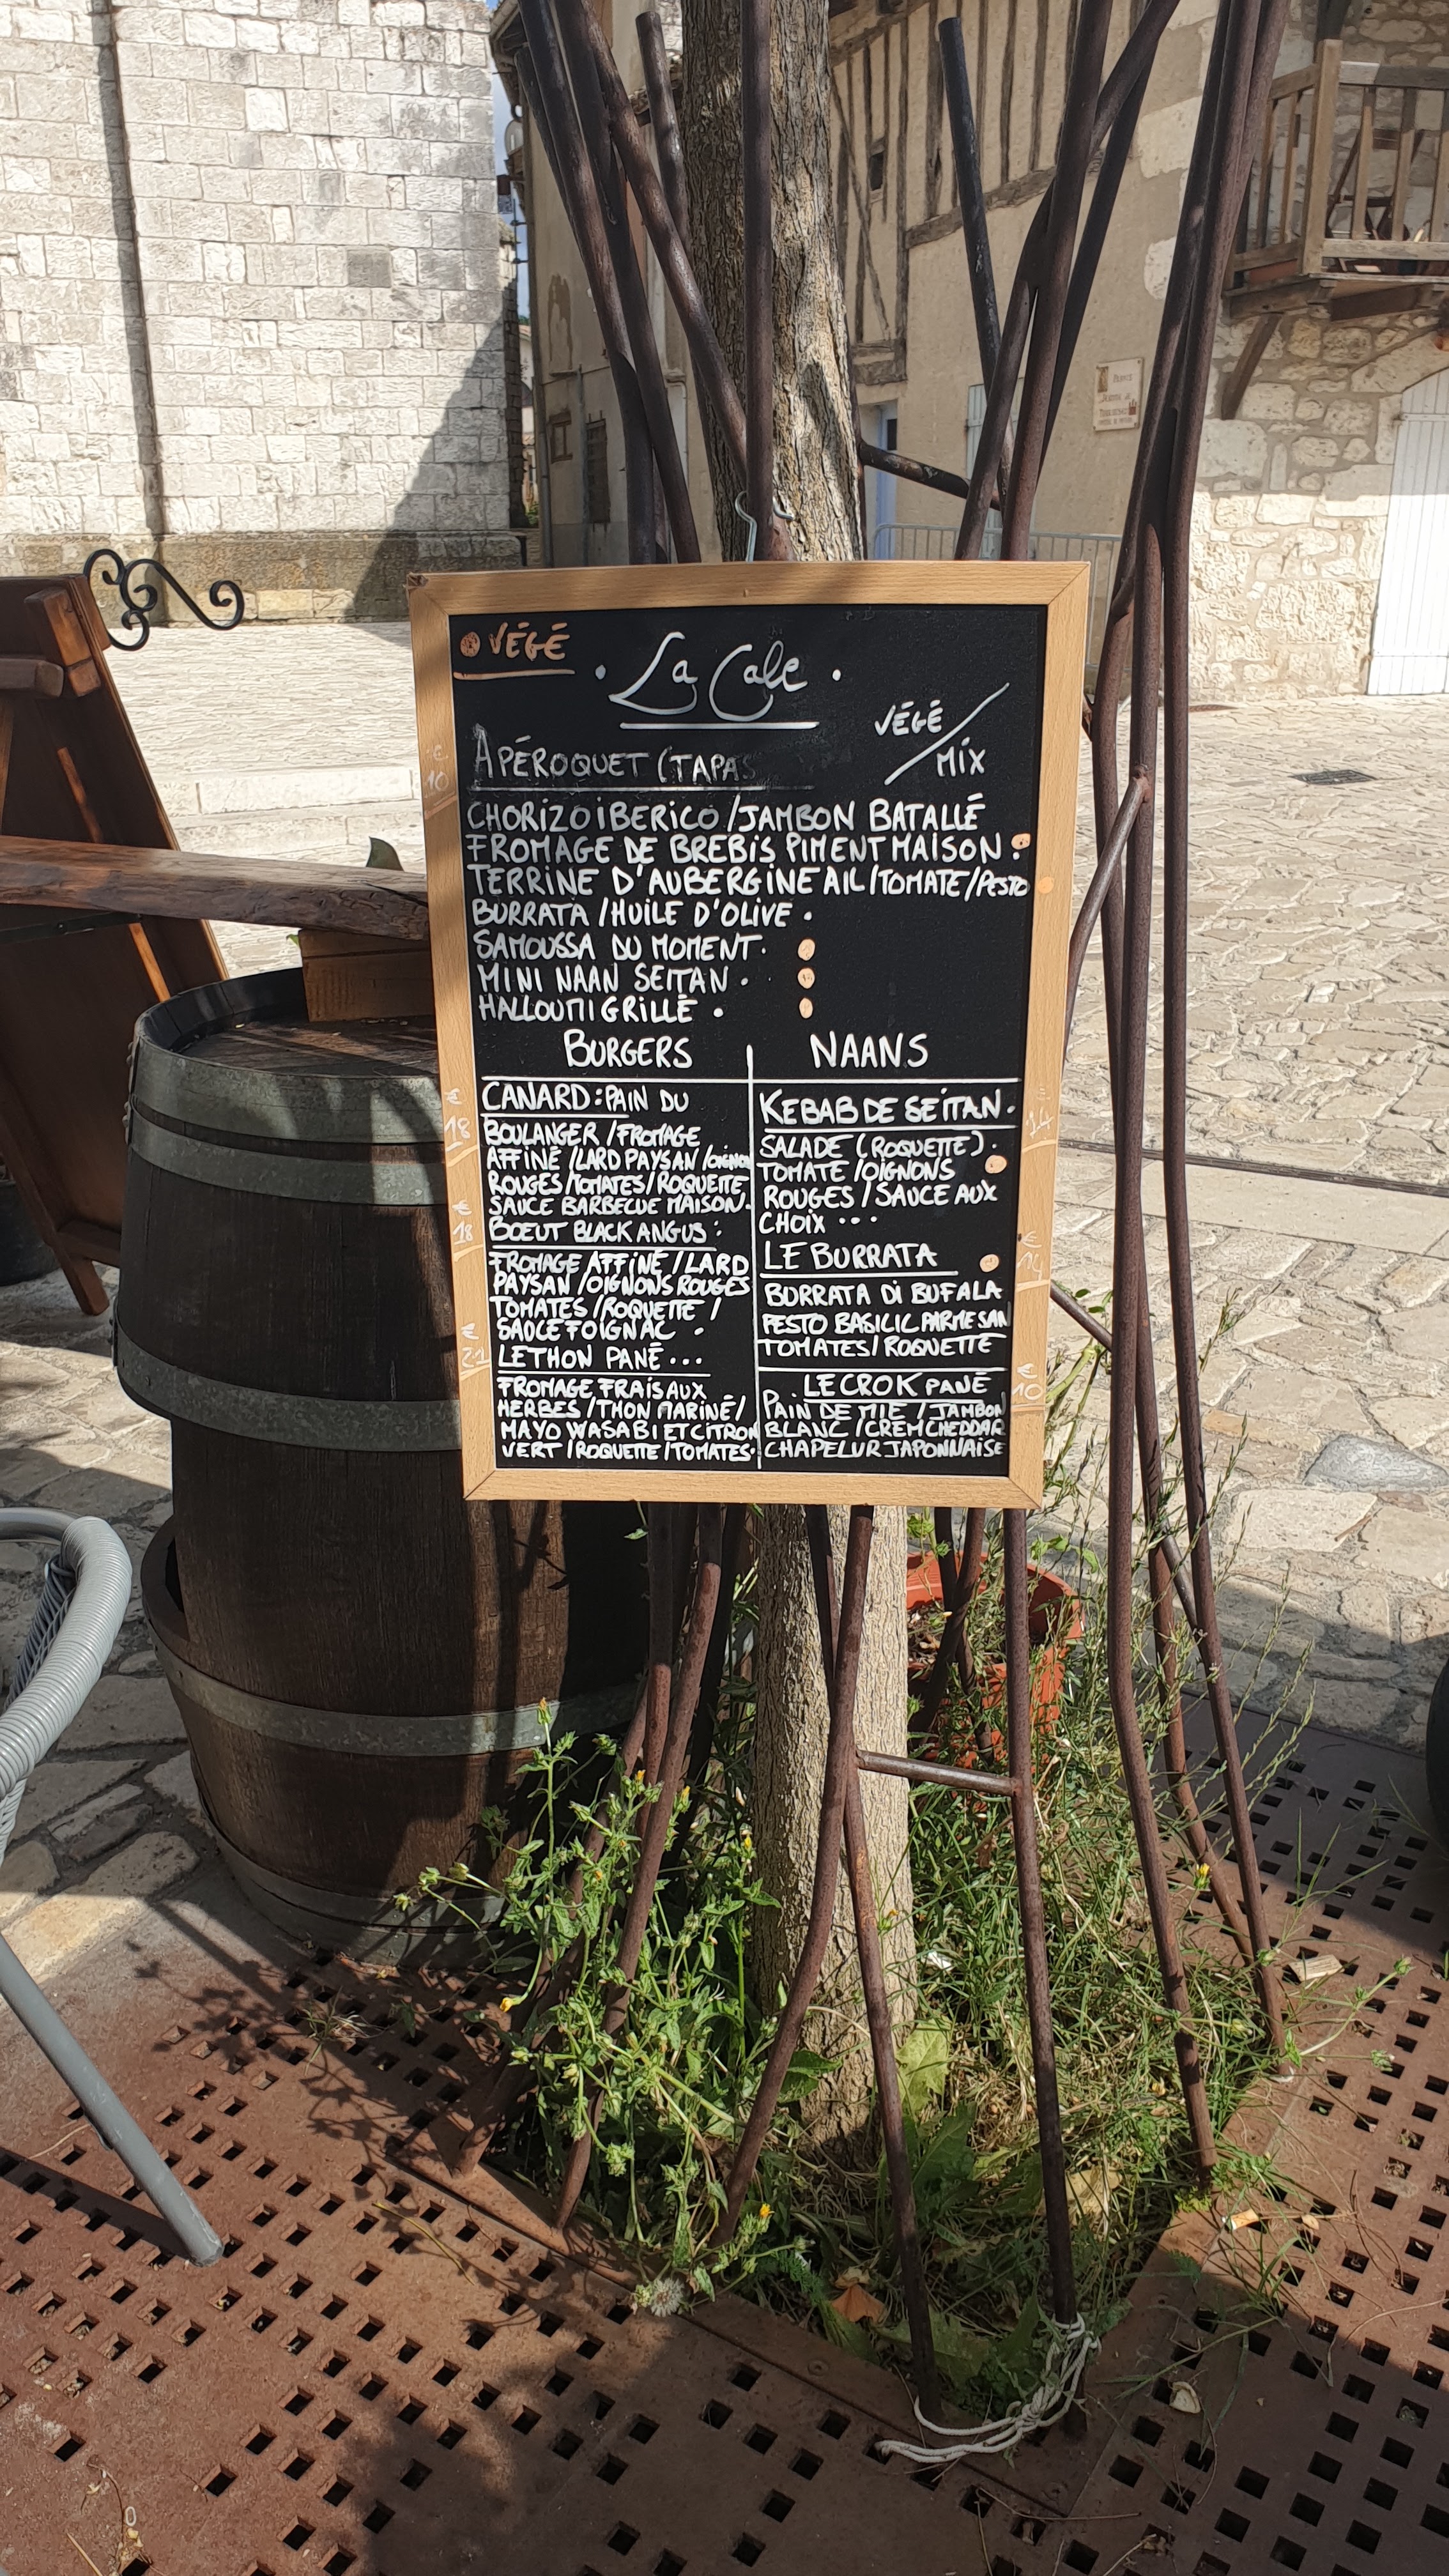 VÉGÉ
. La Cale .
VÉGÉ / MIX
APÉROQUET (TAPAS
€ 10
CHORIZO IBERICO / JAMBON BATALLÉ
FROMAGE DE BREBIS PIMENT MAISON.
TERRINE D'AUBERGINE AIL / TOMATE / PESTO
BURRATA / HUILE D'OLIVE .
SAMOUSSA DU MOMENT.
MINI NAAN SEITAN .
HALLOUMI GRILLÉ .
BURGERS
CANARD : PAIN DU
€ 18
BOULANGER / FROMAGE
AFFINÉ / LARD PAYSAN / OIGNON
ROUGES / TOMATES / ROQUETTE
SAUCE BARBECUE MAISON.
BOEUT BLACK ANGUS :
€ 18
FROMAGE AFFINÉ / LARD
PAYSAN / OIGNONS ROUGES
TOMATES / ROQUETTE /
SAUCE FOIGNAC .
LE THON PANÉ ...
€ 21
FROMAGE FRAIS AUX
HERBES / THON MARINÉ /
MAYO WASABI ET CITRON
VERT / ROQUETTE / TOMATES.
NAANS
KEBAB DE SEITAN.
14
SALADE (ROQUETTE) .
TOMATE / OIGNONS
ROUGES / SAUCE AUX
CHOIX ...
LE BURRATA
€ 14
BURRATA DI BUFALA
PESTO BASILIC PARMESAN
TOMATES / ROQUETTE
LE CROK PANÉ
€ 10
PAIN DE MIE / JAMBON
BLANC / CREM CHEDDAR
CHAPELUR JAPONNAISE